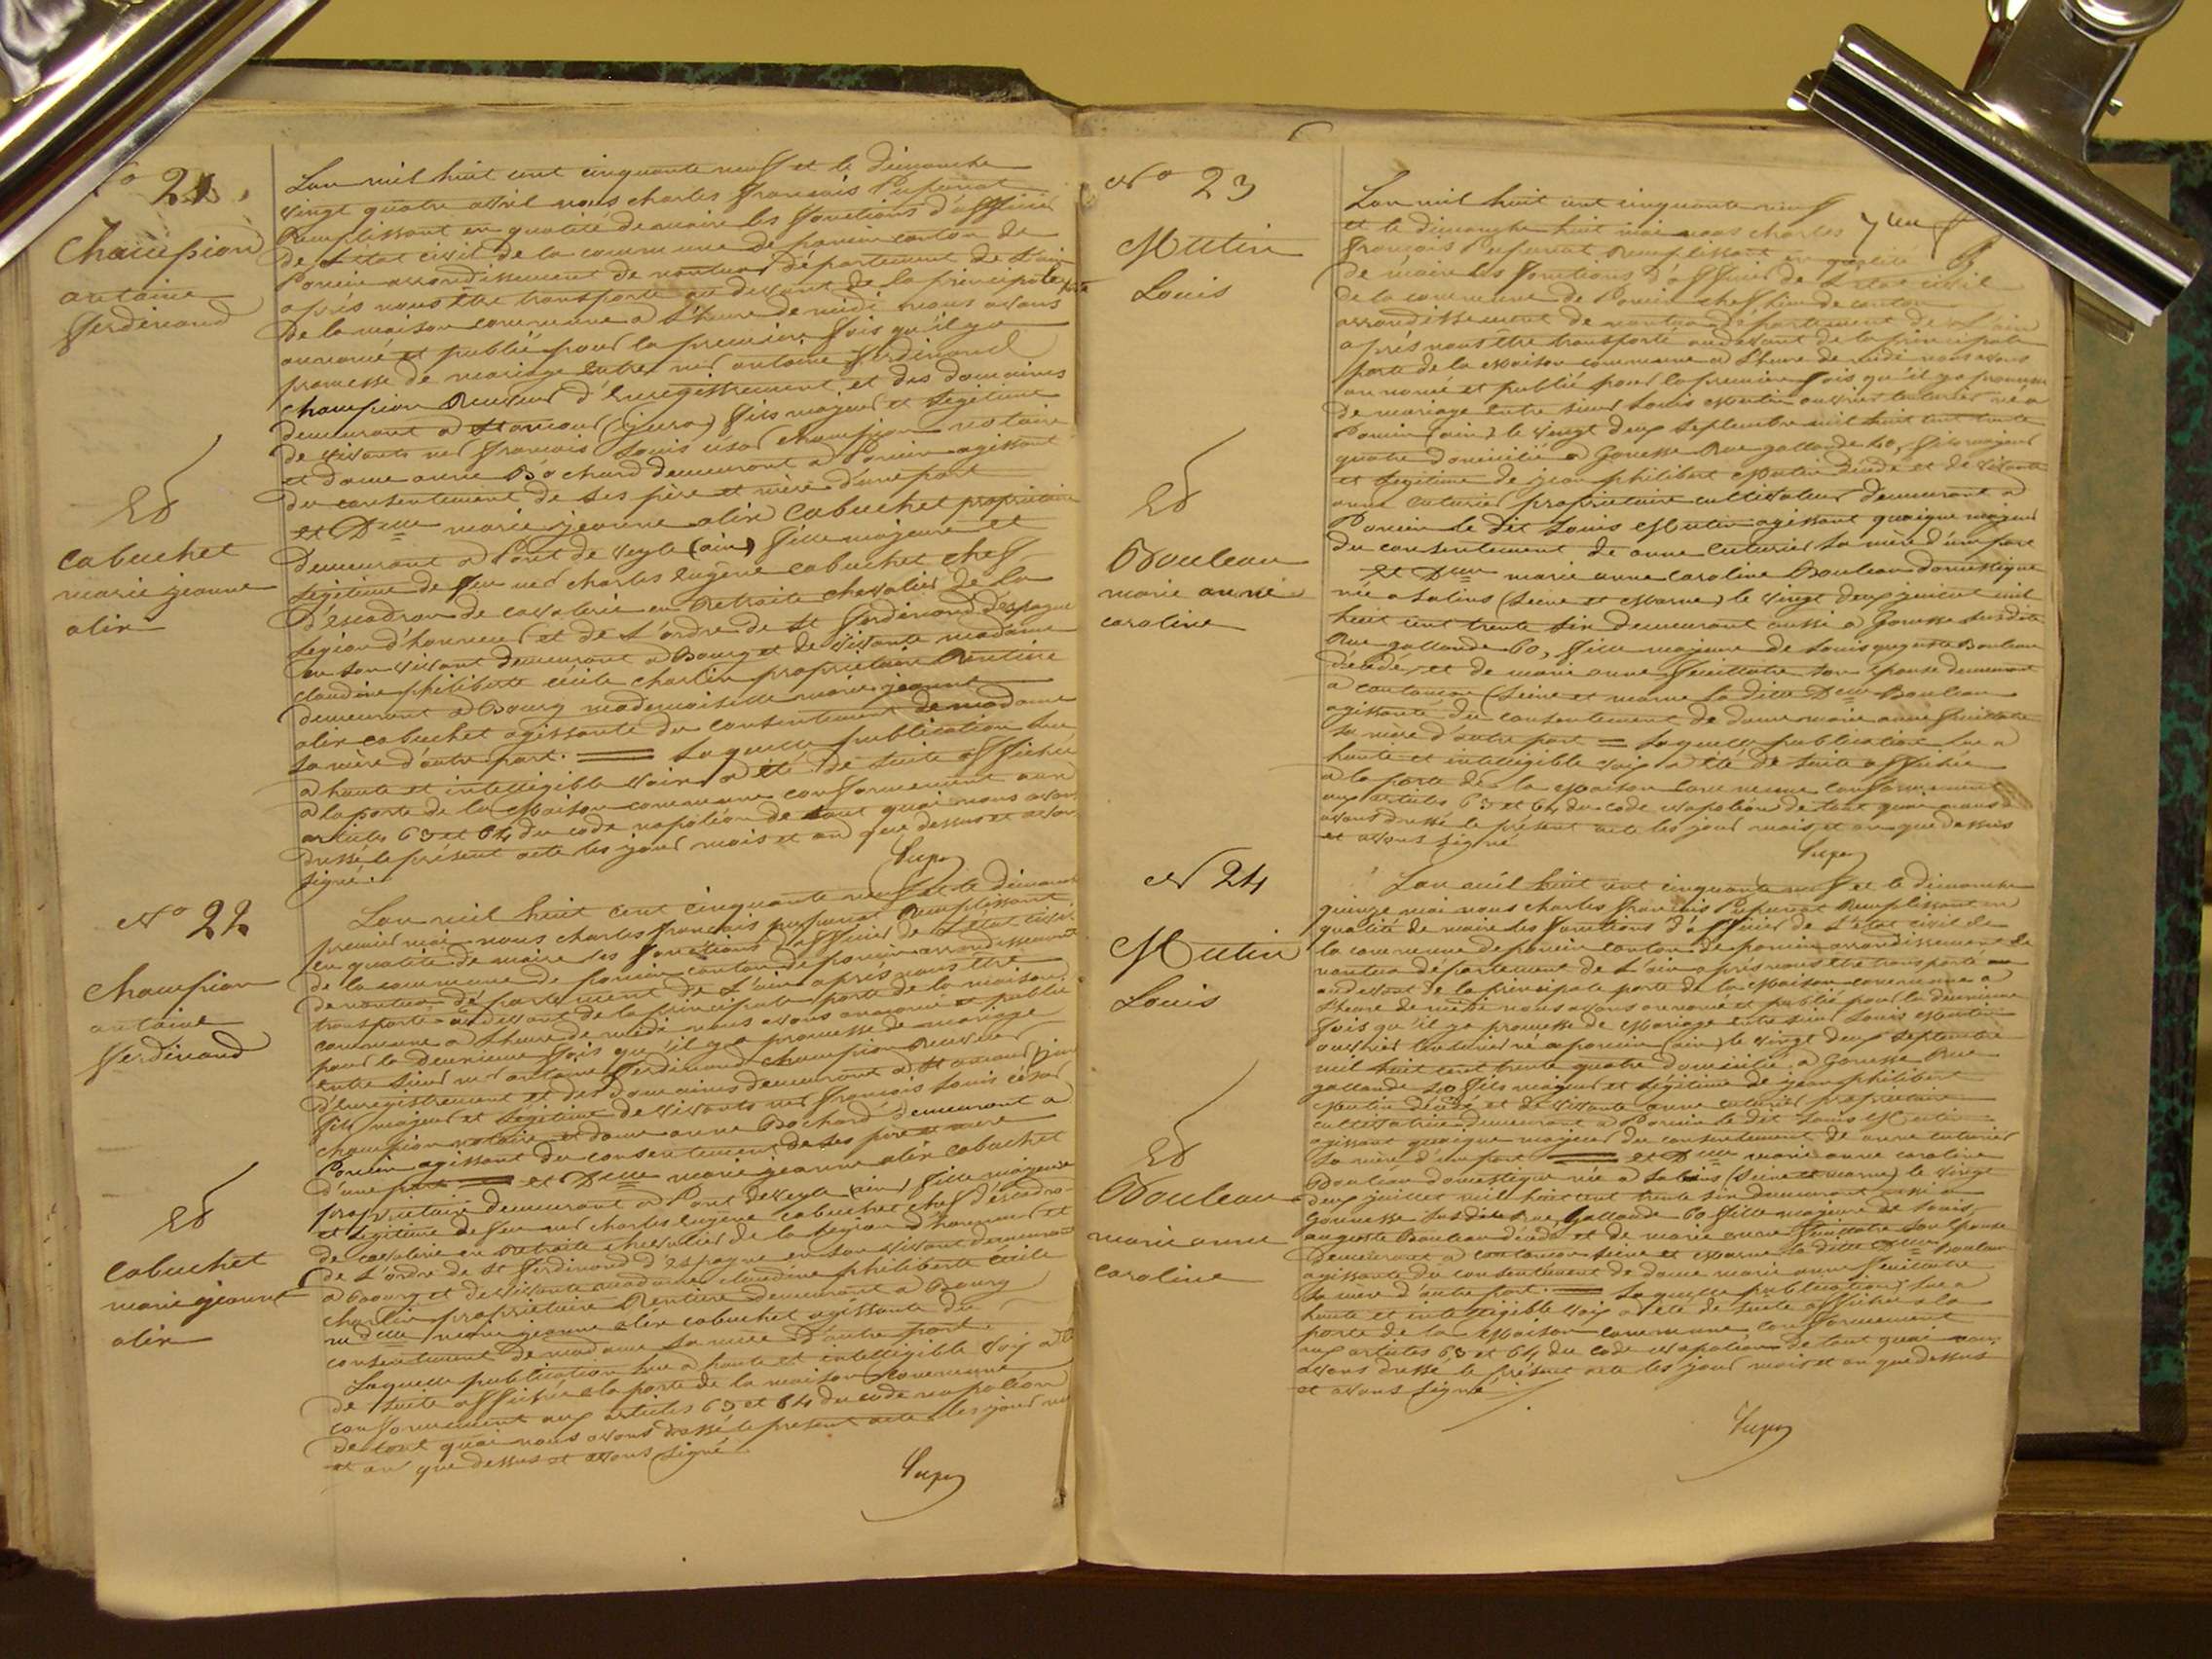 N° 21.
Champion
antoine
ferdinand
Et
Cabuchet
marie jeanne
alix
Lan mil huit cent cinquante neuf et le dimanche
vingt quatre avril nous charles francois
Remplissant en qualité de maire les fonctions d'officier
de L'Etat civil de la commune de poncin canton de
Poncin arrondissement de nantua département de L'ain
après nous être transporté au devant de la principale porte
De la maison commune a L'heure de midi nous avons
annoncé et publié pour la premiere fois qu'il y a
promesse de mariage entre mr antoine ferdinand
Champion Receveur d'Enregistrement et des domaines
demeurant a St amour (jura) fils majeur et Légitime
de vivants mr francois Louis césar champion notaire
et dame anne Bochard demeurant a Poncin agissant
du consentement de ses père et mère d'une part
et Delle marie jeanne alix Cabuchet propriétaire
Demeurant a Pont de veyle (ain) fille majeure et
Légitime de feu mr charles Eugène Cabuchet chef
D'escadron de cavalerie en Retraite chevalier de la
Légion d'honneur et de L'ordre de St ferdinand d'espagne
en son vivant demeurant a Bourg et de vivante madame
claudine philiberte cécile charlin propriétaire Rentiere
demeurant a Bourg mademoiselle marie jeanne
alix cabuchet agissante du consentement de madame
sa mère d'autre part. Laquelle publication lue
a haute et intelligible voix a été de suite affichée
a la porte de la Maison commune conformement aux
articles 63 et 64 du code napoléon de tout quoi nous avons
dressé le présent acte les jour mois et an que dessus et avons
signé.
N° 22
Champion
antoine
ferdinand
Et
Cabuchet
marie jeanne
alix
Lan mil huit cent cinquante neuf et le dimanche
premier mai nous charles francois Remplissant
en qualité de maire les fonctions d'officier de L'Etat civil
de la commune de poncin canton de poncin arrondissement
de nantua département de L'ain après nous être
transporté au devant de la principale porte de la maison
commune a L'heure de midi nous avons annoncé et publié
pour la deuxieme fois qu'il y a promesse de mariage
entre sieur mr antoine ferdinand champion Receveur
d'Enregistrement et des Domaines demeurant a St amour jura
fils majeur et Légitime de vivants mr francois Louis césar
champion notaire et dame anne Bochard demeurant a
Poncin agissant du consentement de ses père et mere
d'une part et Delle marie jeanne alix cabuchet
propriétaire demeurant a Pont de veyle (ain) fille majeure
et Légitime de feu mr charles Eugène cabuchet chef d'éscadron
de cavalerie en Retraite chevalier de la Légion d'honneur et
de L'ordre de St ferdinand d'Espagne en son vivant demeurant
a Bourg et de vivante madame claudine philiberte cécile
charlin propriétaire Rentiere demeurant a Bourg
mdelle marie jeanne alix cabuchet agissante du
consentement de madame sa mère D'autre part.
Laquelle publication lue a haute et intelligible voix a été
de suite affichée a la porte de la maison commune
conformement aux articles 63 et 64 du code napoléon
de tout quoi nous avons dressé le présent acte les jour mois
et an que dessus et avons signé
N° 23
Mutin
Louis
Et
Bouleau
marie anne
caroline
Lan mil huit cent cinquante neuf
et le dimanche huit mai nous charles
francois Remplissant en qualité
de maire les fonctions d'officier de L'etat civil
de la commune de Poncin chef lieu de canton
arrondissement de nantua département de L'ain
après nous être transporté au devant de la principale
porte de la Maison commune a L'heure de midi nous avons
annoncé et publié pour la premiere fois qu'il y a promesse
de mariage entre sieur Louis Mutin ouvrier teinturier né a
Poncin (ain) le vingt deux septembre mil huit cent trente
quatre domicilié a Gonesse Rue gallande 40, fils majeur
et Légitime de jean philibert Mutin décédé et de vivante
anne cuturier propriétaire cultivateur demeurant a
Poncin le dit Louis Mutin agissant quoique majeur
du consentement de anne cuturier sa mère d'une part
Et Delle marie anne caroline Bouleau domestique
née a Salins (Seine et Marne) le vingt deux juillet mil
huit cent trente six demeurant aussi a Gonesse susdite
Rue gallande 60, fille majeure de Louis auguste Bouleau
décédé, et de marie anne son épouse demeurant
a (Seine et marne la dite Delle Bouleau
agissante du consentement de dame marie anne
sa mère d'autre part = Laquelle publication lue a
haute et intelligible voix a été de suite affichée
a la porte de la Maison commune conformement
aux articles 63 et 64 du code napoléon de tout quoi nous
avons dressé le présent acte les jour mois et an que dessus
et avons signé
N 24
Mutin
Louis
Et
Bouleau
marie anne
caroline
Lan mil huit cent cinquante neuf et le dimanche
quinze mai nous charles francois Remplissant en
qualité de maire les fonctions d'officier de L'état civil de
la commune de poncin canton de poncin arrondissement de
nantua département de L'ain après nous être transporté au
au devant de la principale porte de la Maison commune a
L'heure de midi nous avons annoncé et publié pour la deuxieme
fois qu'il y a promesse de Mariage entre sieur Louis Mutin
ouvrier teinturier né a poncin (ain) le vingt deux septembre
mil huit cent trente quatre domicilié a Gonesse Rue
gallande 40 fils majeur et Légitime de jean philibert
Mutin décédé et de vivante anne cuturier propriétaire
cultivatrice demeurant a Poncin le dit Louis Mutin
agissant quoique majeur du consentement de anne cuturier
sa mère d'une part et Delle marie anne caroline
Bouleau domestique née a Salins (Seine et marne) le vingt
deux juillet mil huit cent trente six demeurant aussi a
Gonnesse susdite Rue Gallande 60 fille majeure de Louis
auguste Bouleau décédé et de marie anne son épouse
Demeurant a Seine et Marne la dite Delle Bouleau
agissante du consentement de dame marie anne
sa mère d'autre part. Laquelle publication lue a
haute et intelligible voix a été de suite affichée a la
porte de la Maison commune conformement
aux articles 63 et 64 du code napoléon de tout quoi nous
avons dressé le présent acte les jour mois et an que dessus
et avons signé